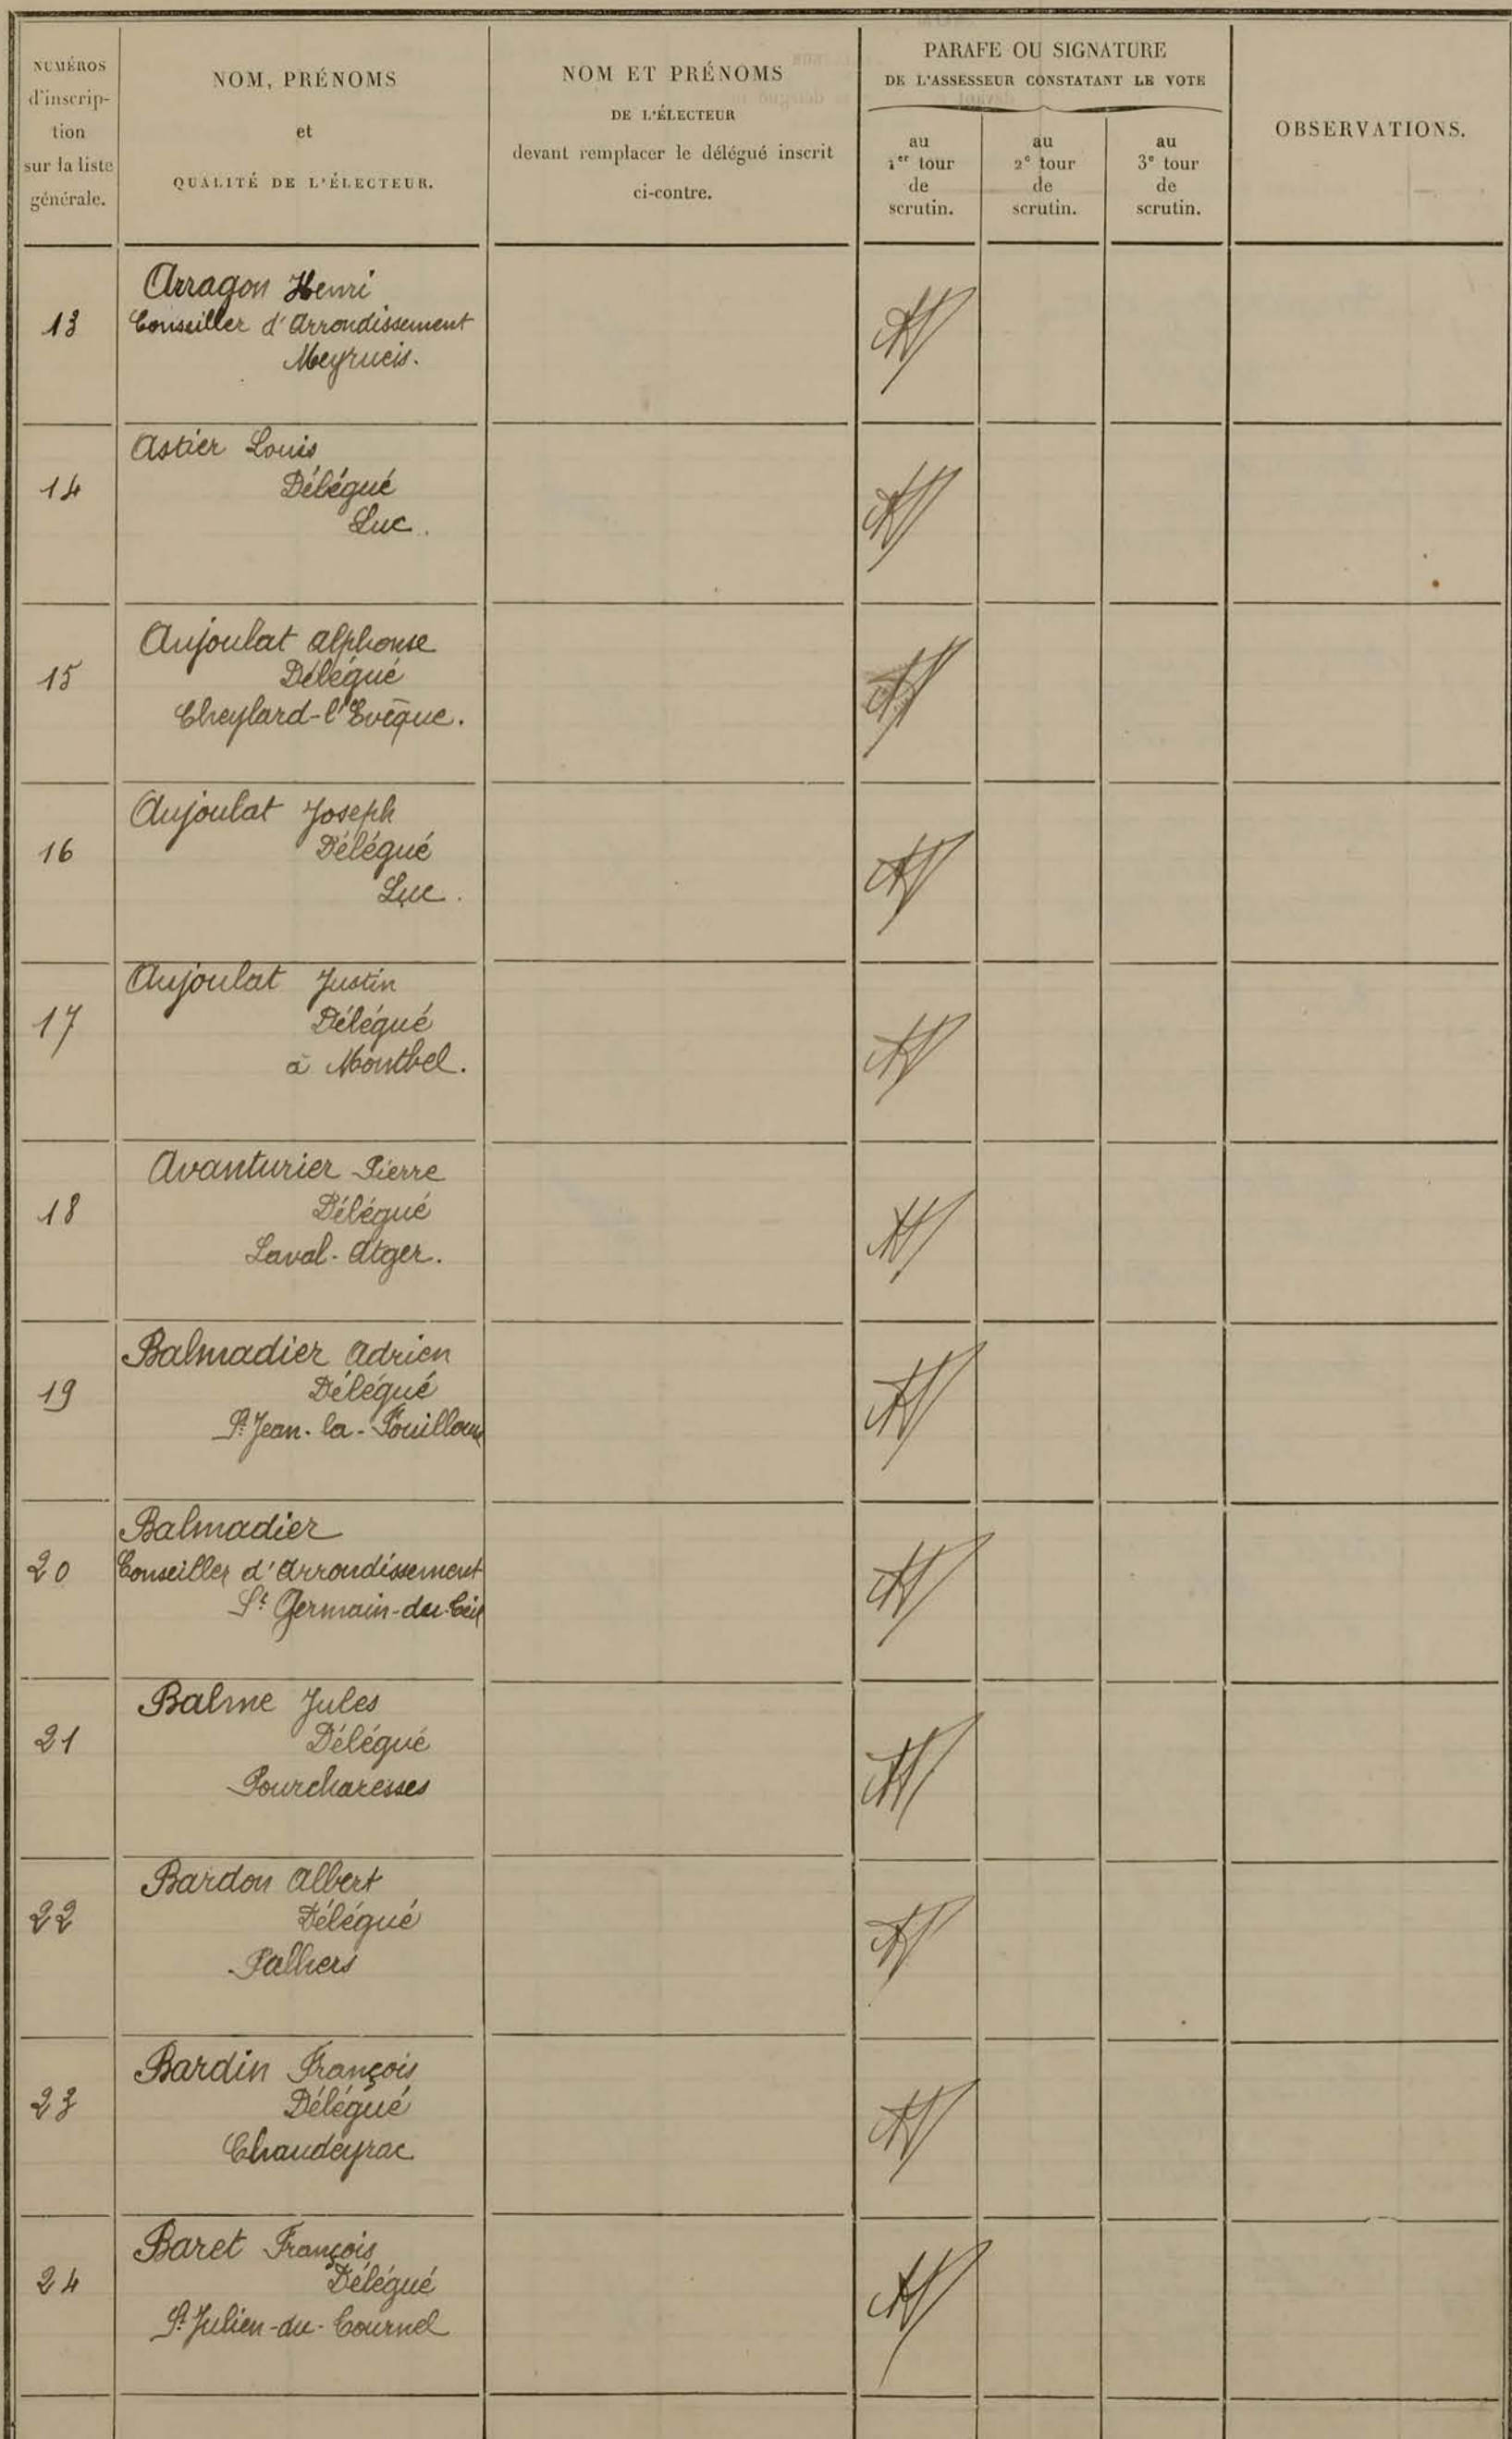 NUMÉROS
d'inscrip-
tion
sur la liste
générale.
NOM, PRÉNOMS
et
QUALITÉ DE L'ÉLECTEUR.
NOM ET PRÉNOMS
DE L'ÉLECTEUR
devant remplacer le délégué inscrit
ci-contre.
PARAFE OU SIGNATURE
DE L'ASSESSEUR CONSTATANT LE VOTE
au
1er tour
de
scrutin.
au
2e tour
de
scrutin.
au
3e tour
de
scrutin.
OBSERVATIONS.
13
Arragon Henri
Conseiller d'Arrondissement
Meyrueis.
14
Astier Louis
Délégué
Luc.
15
Aujoulat Alphonse
Délégué
Cheylard-l'Evêque.
16
Aujoulat Joseph
Délégué
Luc.
17
Aujoulat Justin
Délégué
à Montbel.
18
Avanturier Pierre
Délégué
Laval-Atger.
19
Balmadier Adrien
Délégué
St Jean-la-Fouillouse
20
Balmadier
Conseiller d'Arrondissement
St Germain-du-Teil
21
Balme Jules
Délégué
Pourcharesses
22
Bardon Albert
Délégué
Palhers
23
Bardin François
Délégué
Chaudeyrac
24
Baret François
Délégué
St Julien-du-Tournel